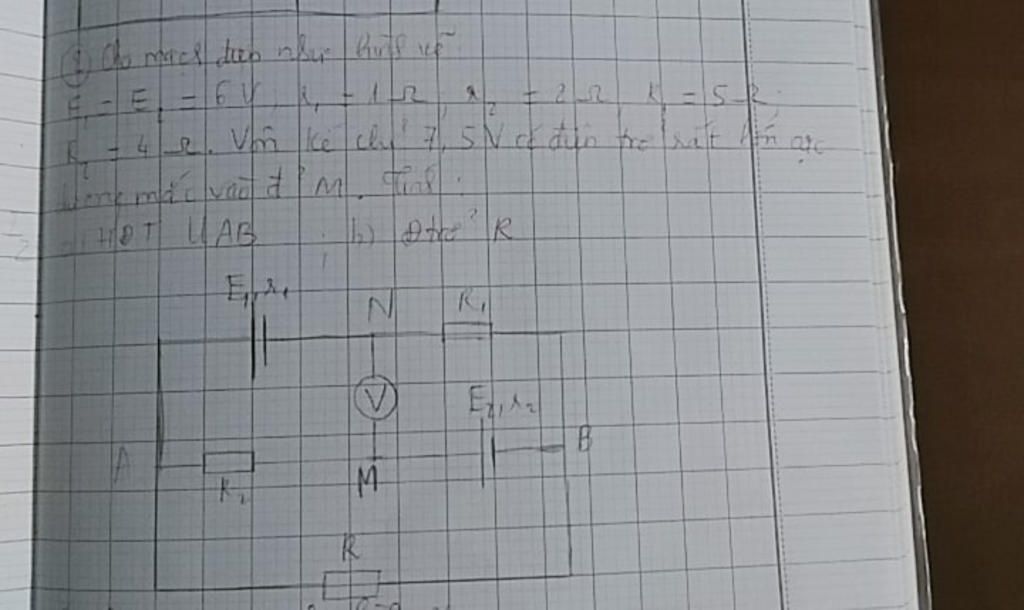 Cho mạch điện như hình vẽ
E₁ = E₂ = 6V, r₁ = 1Ω, r₂ = 2Ω, R₁ = 5Ω,
R₂ = 4Ω. Vôn kế chỉ 7,5V có điện trở rất lớn cực
dương mắc vào đ' M. Tính:
HĐT UAB b) Đtrở R
E₁, r₁
N
R₁
V
E₂, r₂
A
B
R₂
M
R